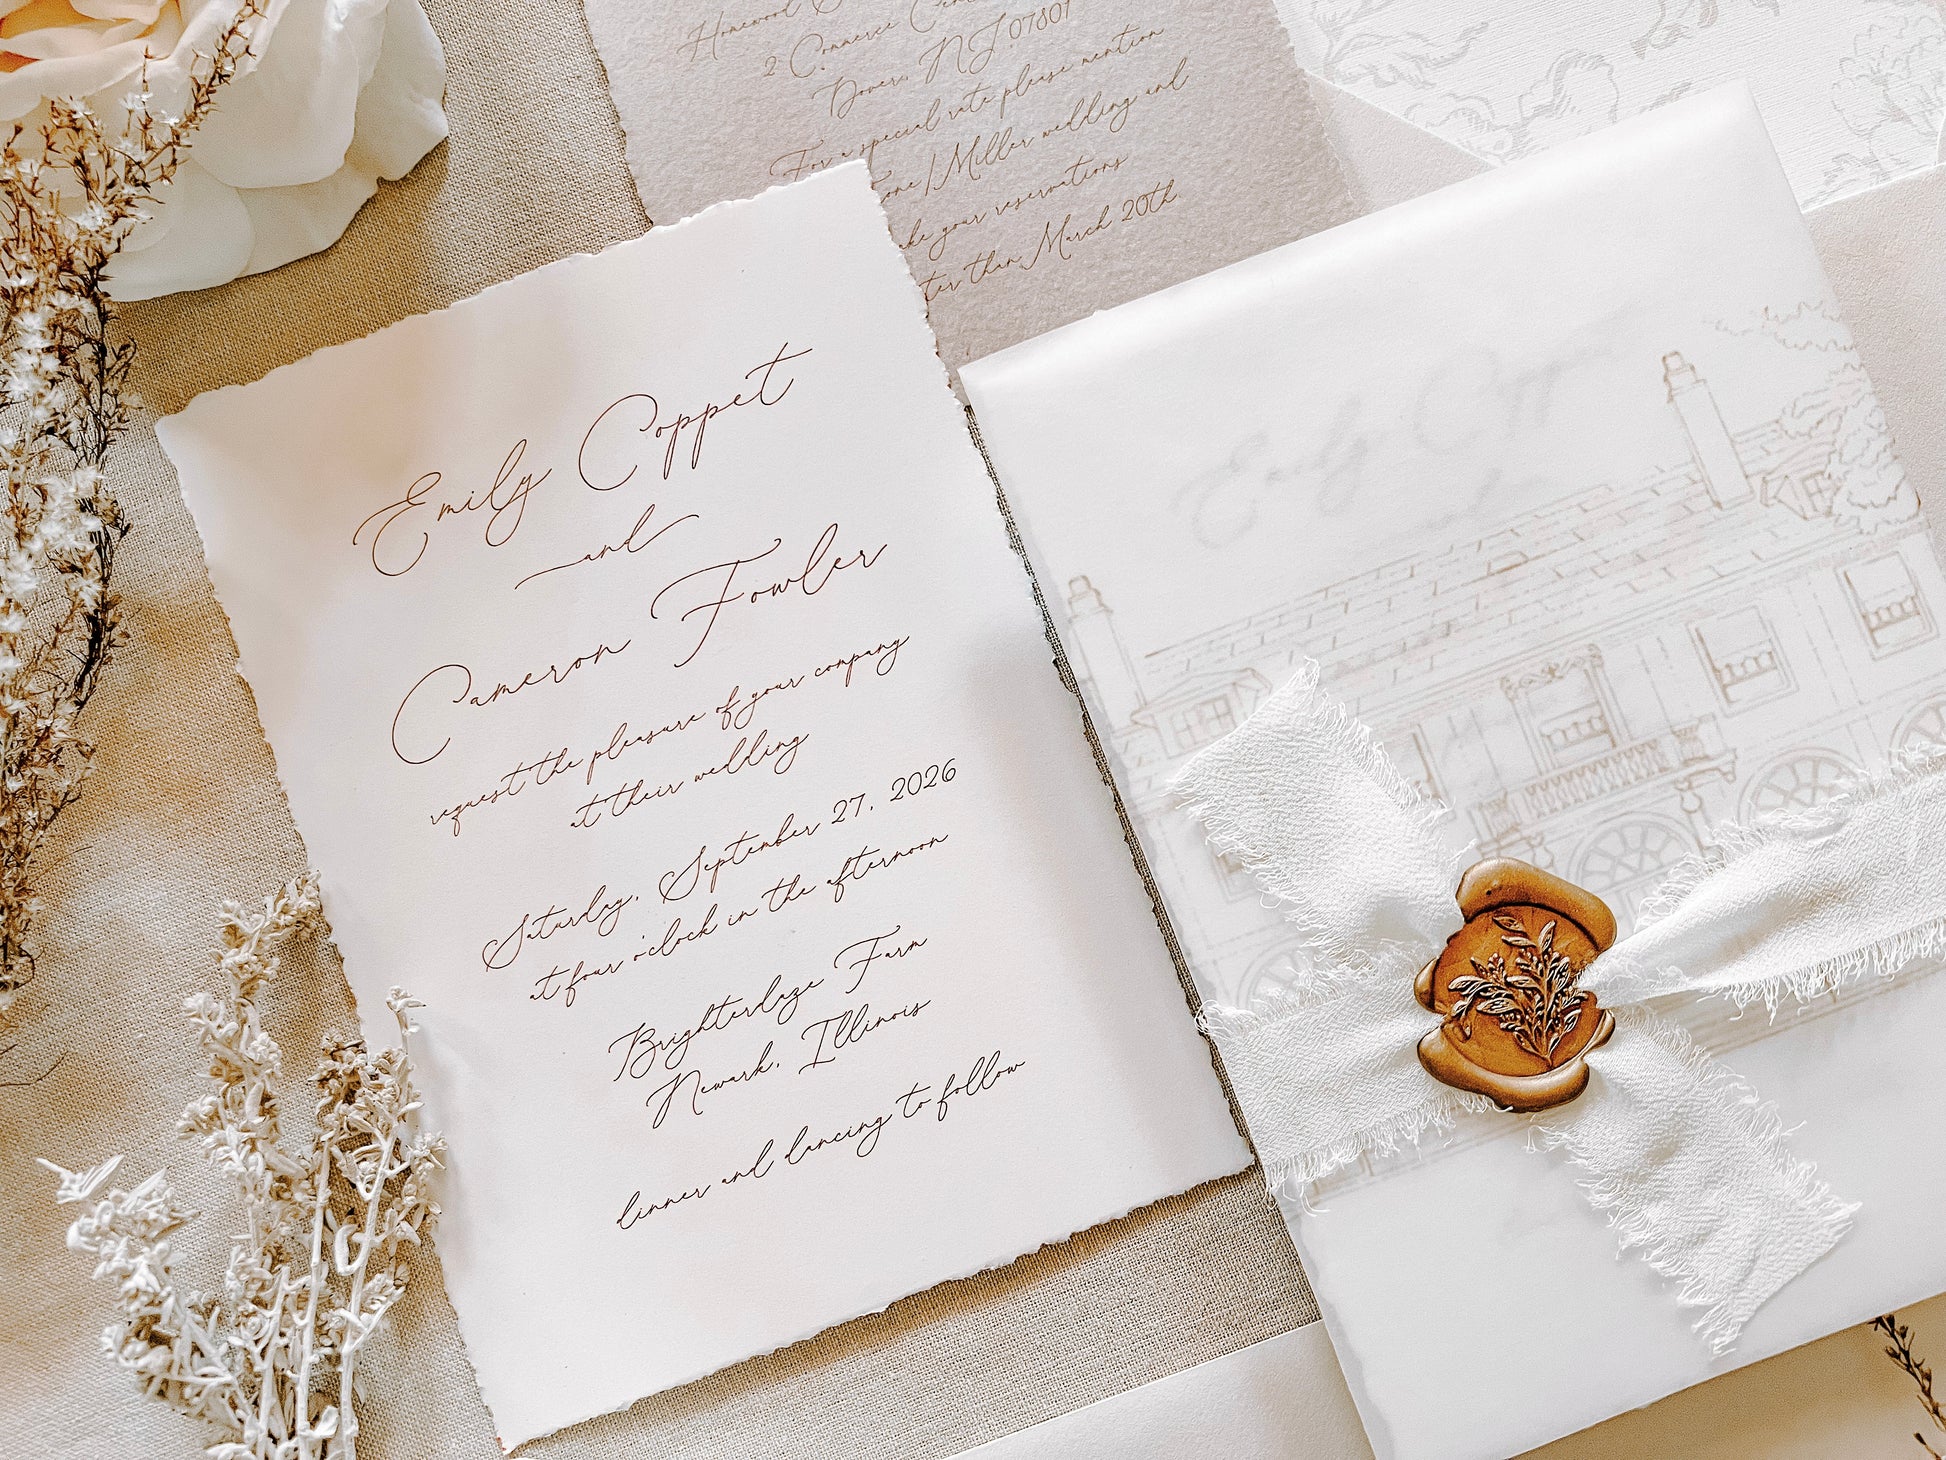 2 Commerce
Dover, NJ 07801
For a special rate please mention
/Miller wedding and
your reservations
than March 20th.
Emily Coppet
and
Cameron Fowler
request the pleasure of your company
at their wedding
Saturday, September 27, 2026
at four o'clock in the afternoon
Brighterdaze Farm
Newark, Illinois
dinner and dancing to follow
Emily